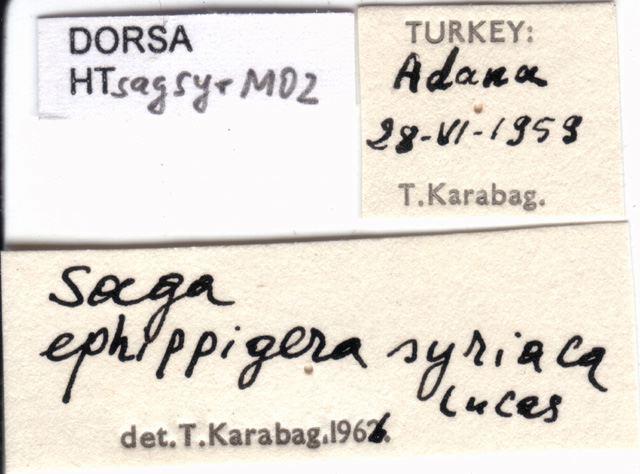 DORSA
HTsagsyrM02
TURKEY:
Adana
28-VI-1959
T.Karabag.
Saga
ephippigera syriaca
Lucas
det.T.Karabag.1966.